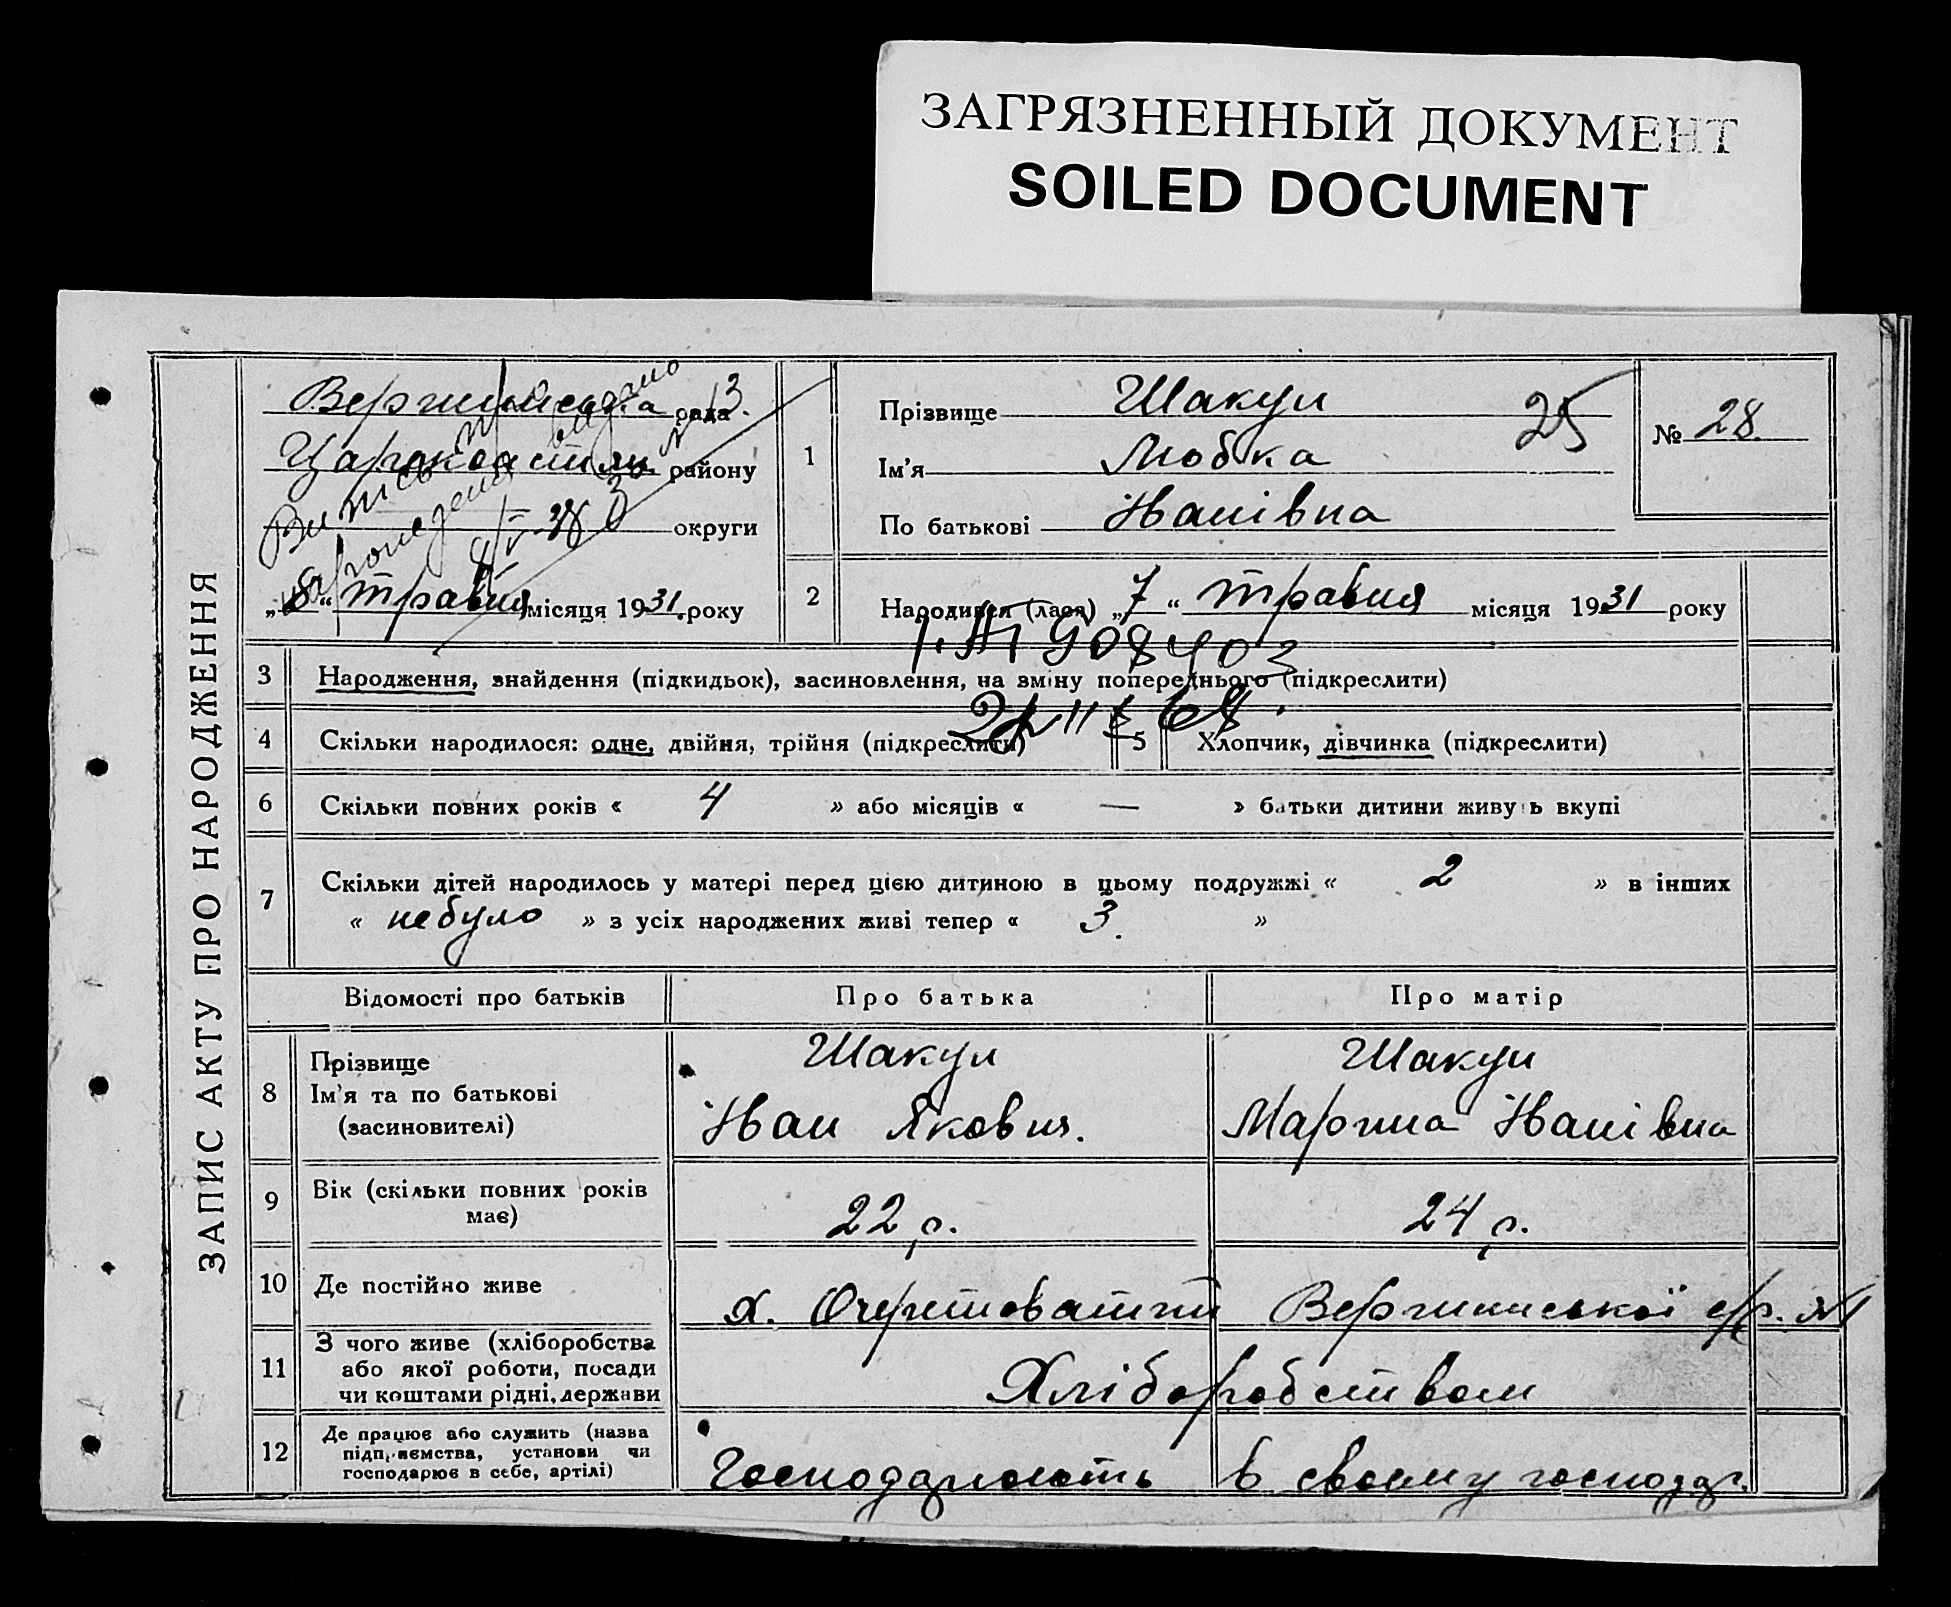 ЗАГРЯЗНЕННЫЙ ДОКУМЕНТ
SOILED DOCUMENT
ЗАПИС АКТУ ПРО НАРОДЖЕННЯ
рада 13.
району
округи
„8“ травня місяця 1931. року
1
Прізвище Шакун
Ім'я Любка
По батькові Іванівна
25
№ 28.
2
Народився (лася) „7“ травня місяця 1931 року
908403
3 Народження, знайдення (підкидьок), засиновлення, на зміну попереднього (підкреслити)
4 Скільки народилося: одне, двійня, трійня (підкреслити) 5 Хлопчик, дівчинка (підкреслити)
6 Скільки повних років « 4 » або місяців « — » батьки дитини живуть вкупі
7 Скільки дітей народилось у матері перед цією дитиною в цьому подружжі « 2 » в інших
« не було » з усіх народжених живі тепер « 3. »
Відомості про батьків Про батька Про матір
8 Прізвище Шакун Шакун
Ім'я та по батькові Іван Якович. Марина Іванівна
(засиновителі)
9 Вік (скільки повних років має) 22 р. 24 р.
10 Де постійно живе х. Очеретоватий
11 З чого живе (хліборобства
або якої роботи, посади
чи коштами рідні, держави Хліборобством
12 Де працює або служить (назва
підприємства, установи чи
господарює в себе, артілі) Господарюють в своєму господар.